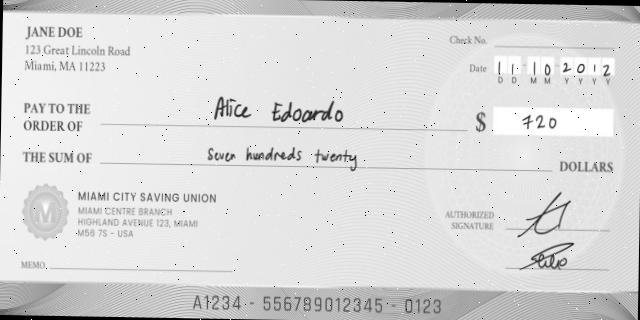 JANE DOE
123 Great Lincoln Road
Miami, MA 11223
Check No.
Date 11-10-2012
D D M M Y Y Y Y
PAY TO THE
ORDER OF Alice Edoardo $ 720
THE SUM OF Seven hundreds twenty DOLLARS
MIAMI CITY SAVING UNION
MIAMI CENTRE BRANCH
HIGHLAND AVENUE 123, MIAMI
M56 7S - USA
AUTHORIZED
SIGNATURE
MEMO.
A1234 - 556789012345 - 0123